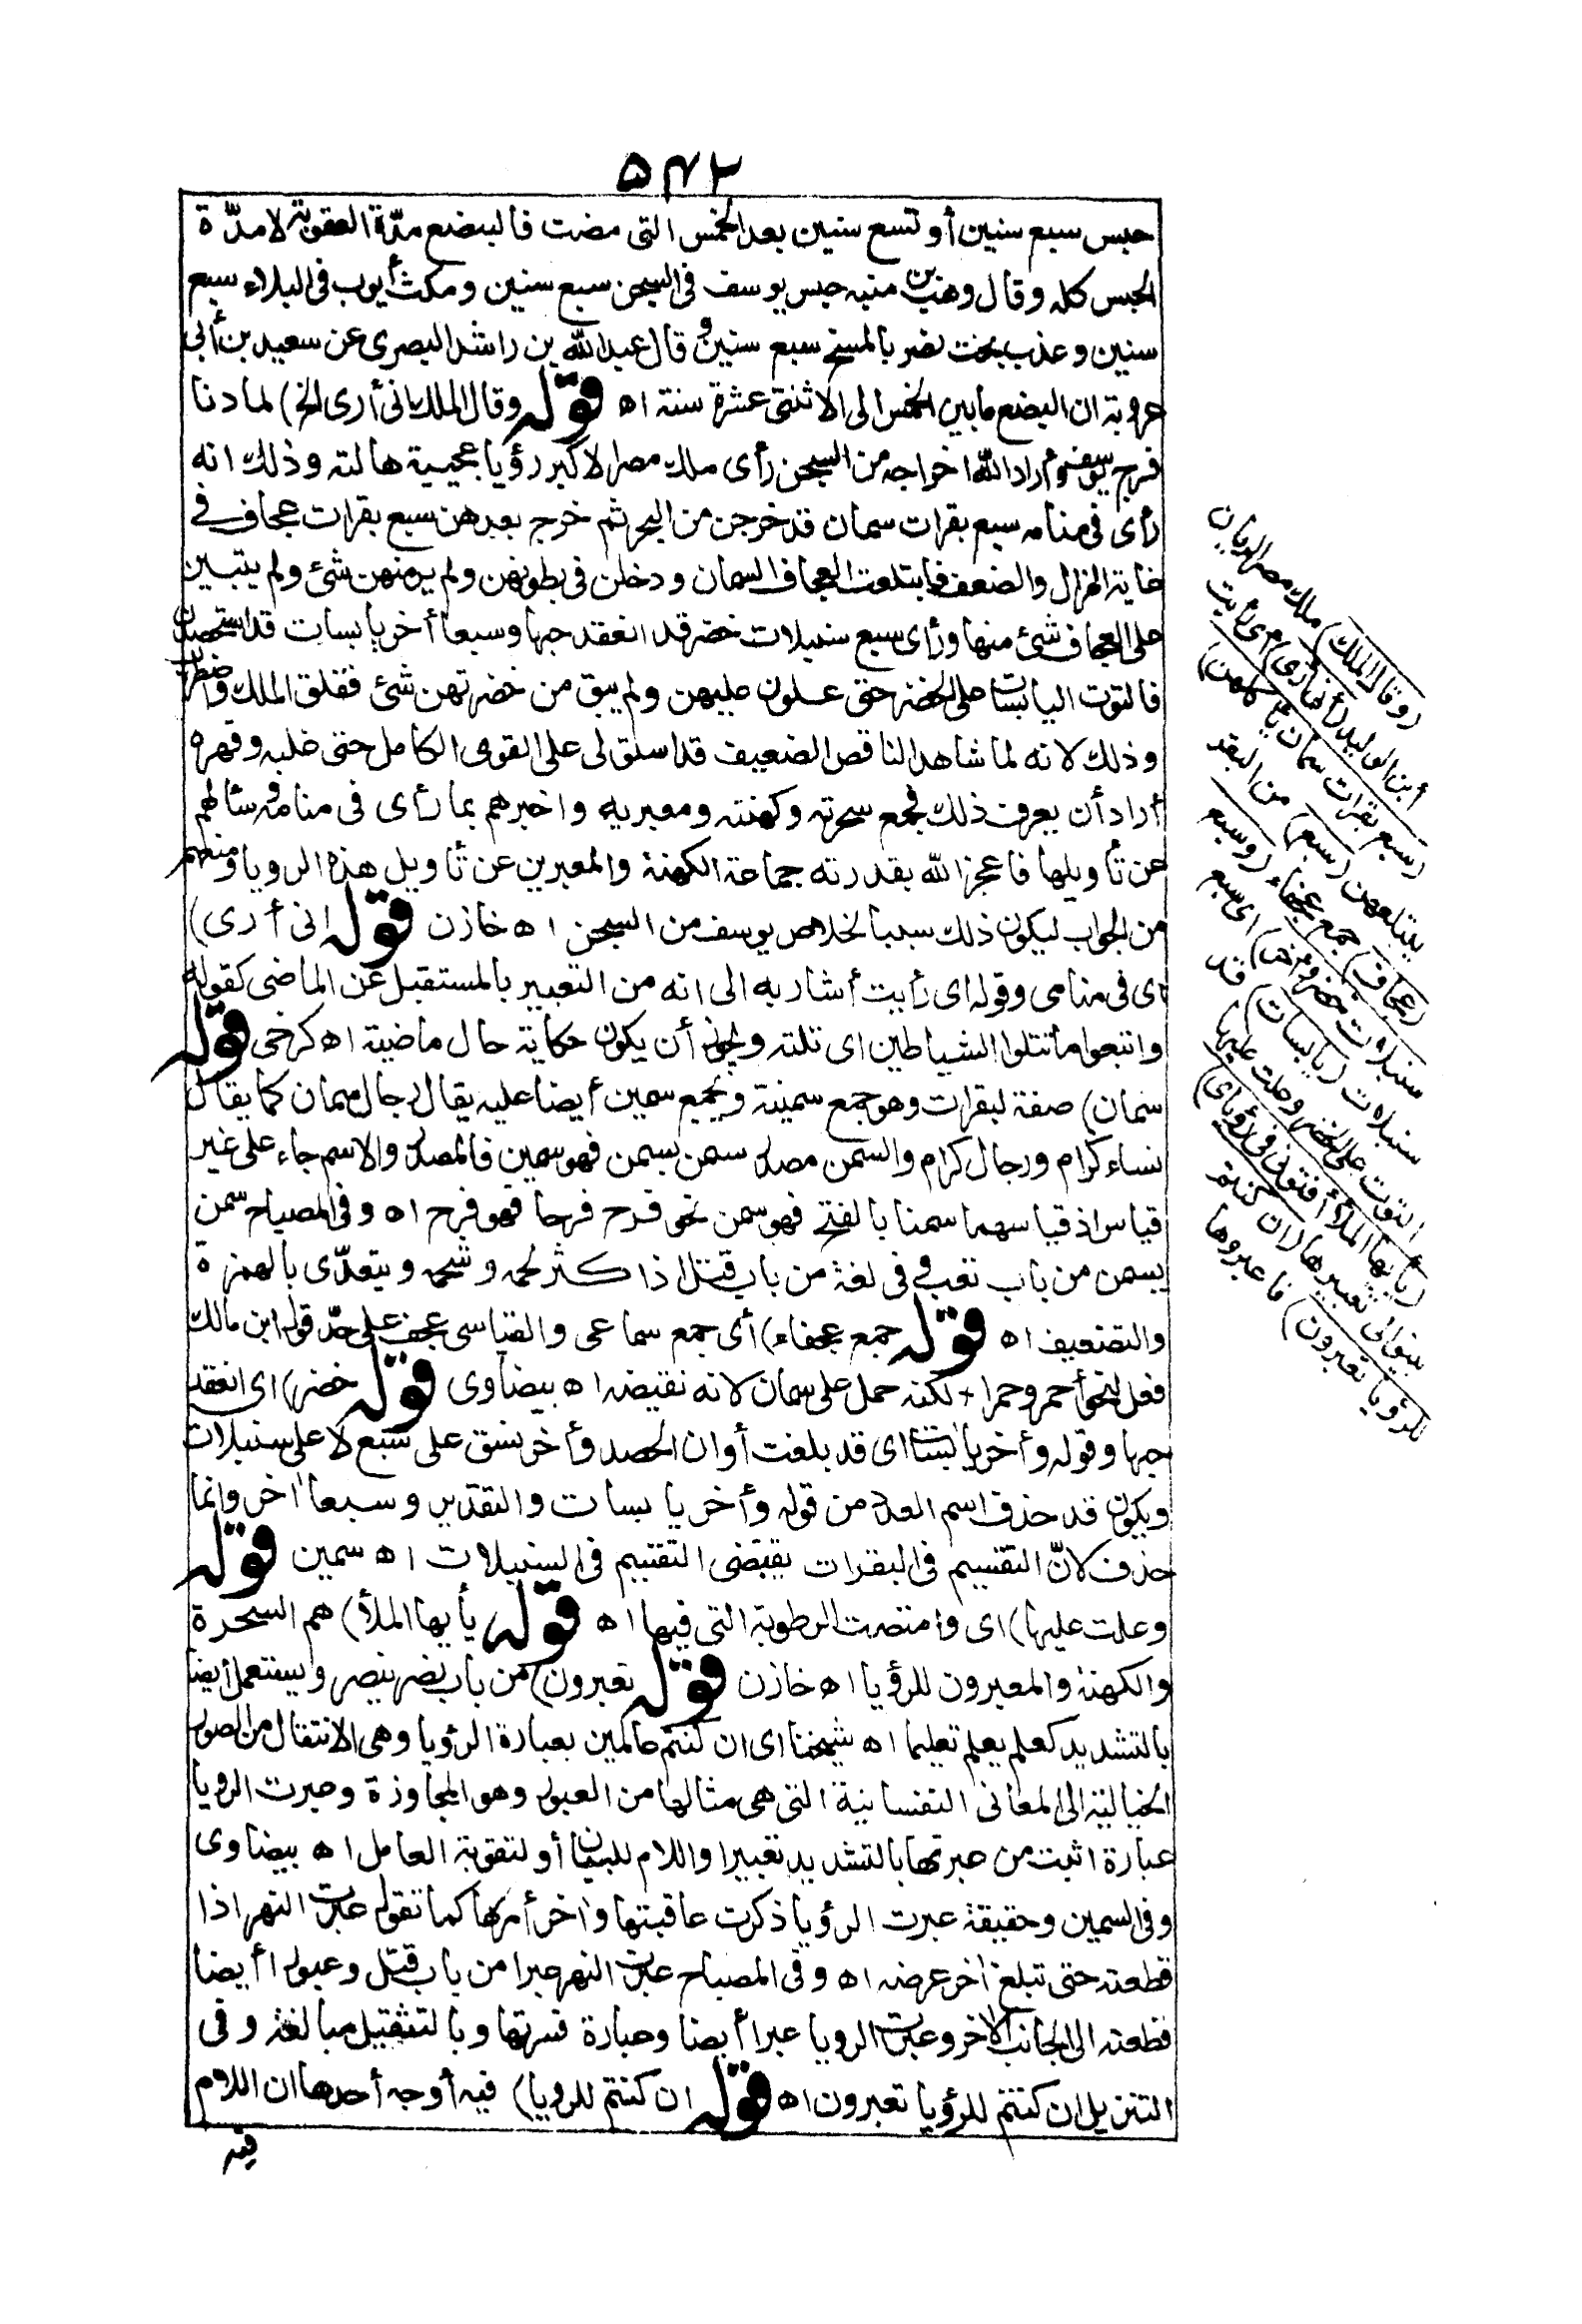 ۵۴۲
حبس سبع سنين أو تسع سنين بعد الخمس التى مضت فالبضع مدّة العقوبة لا مدّة
الحبس كله وقال وهب بن منبه حبس يوسف فى السجن سبع سنين ومكث أيوب فى البلاء سبع
سنين وعذب بخت نصر بالمسخ سبع سنين وقال عبد الله بن راشد البصرى عن سعيد بن أبى
عروبة ان البضع ما بين الخمس الى الاثنتى عشرة سنة اه قوله وقال الملك انى أرى الخ) لما دنا
فرج يوسف وأراد الله اخراجه من السجن رأى ملك مصر الاكبر رؤيا عجيبة هالته وذلك انه
رأى فى منامه سبع بقرات سمان قد خرجن من البحر ثم خرج بعدهن سبع بقرات عجاف فى
غاية الهزال والضعف فابتلعت العجاف السمان ودخلن فى بطونهن ولم ير منهن شئ ولم يتبين
على العجاف شئ منها ورأى سبع سنبلات خضر قد انعقد حبها وسبعا أخر يابسات قد استحصدن
فالتوت اليابسات على الخضر حتى علون عليهن ولم يبق من خضرتهن شئ فقلق الملك واضطرب
وذلك لانه لما شاهد الناقص الضعيف قد استولى على القوى الكامل حتى غلبه وقهره
أراد أن يعرف ذلك فجمع سحرته وكهنته ومعبريه واخبرهم بما رأى فى منامه وسألهم
عن تأويلها فاعجز الله بقدرته جماعة الكهنة والمعبرين عن تأويل هذه الرويا ومنعهم
من الجواب ليكون ذلك سببا لخلاص يوسف من السجن اه خازن قوله انى أرى)
اى فى منامى وقوله اى رأيت أشار به الى انه من التعبير بالمستقبل عن الماضى كقوله
واتبعوا ما تتلوا الشياطين اى تلته ويجوز أن يكون حكاية حال ماضية اه كرخى قوله
سمان) صفة لبقرات وهو جمع سمينة ويجمع سمين أيضا عليه يقال رجال سمان كما يقال
نساء كرام ورجال كرام والسمن مصدر سمن يسمن فهو سمين فالمصدر والاسم جاء على غير
قياس اذ قياسهما سمنا بالفتح فهو سمن نحو فرح فرحا فهو فرح اه وفى المصباح سمن
يسمن من باب تعب وفى لغة من باب قتل اذا كثر لحمه وشحمه ويتعدّى بالهمزة
والتضعيف اه قوله جمع عجفاء) أى جمع سماعى والقياسى عجف على حدّ قول ابن مالك
فعل لنحو أحمر وحمرا + لكنه حمل على سمان لانه نقيضه اه بيضاوى قوله خضر) اى انعقد
حبها وقوله وأخر يابسات اى قد بلغت أوان الحصد وأخر نسق على سبع لا على سنبلات
ويكون قد حذف اسم العدد من قوله وأخر يابسات والتقدير وسبعا اخر وانما
حذف لانّ التقسيم فى البقرات يقتضى التقسيم فى السنبلات اه سمين قوله
وعلت عليها) اى وامتصت الرطوبة التى فيها اه قوله يأيها الملأ) هم السحرة
والكهنة والمعبرون للرؤيا اه خازن قوله تعبرون) من باب نصر ينصر ويستعمل أيضا
بالتشديد كعلم يعلم تعليما اه شيخنا اى ان كنتم عالمين بعبارة الرؤيا وهى الانتقال من الصور
الخيالية الى المعانى النفسانية التى هى مثالها من العبور وهو المجاوزة وعبرت الرويا
عبارة اثبت من عبرتها بالتشديد تعبيرا واللام للبيان أو لتقوية العامل اه بيضاوى
وفى السمين وحقيقة عبرت الرؤيا ذكرت عاقبتها واخر أمرها كما تقول عبرت النهر اذا
قطعته حتى تبلغ اخر عرضه اه وفى المصباح عبرت النهر عبرا من باب قتل وعبورا أيضا
قطعته الى الجانب الاخر وعبرت الرويا عبرا أيضا وعبارة فسرتها وبالتثقيل مبالغة وفى
التنزيل ان كنتم للرؤيا تعبرون اه قوله ان كنتم للرويا) فيه أوجه أحدها ان اللام
فيه
(وقال الملك) ملك مصر الريان
ابن الوليد (أنى أرى) اى رأيت
(سبع بقرات سمان يأكلهن)
يبتلعهن (سبع) من البقر
(عجاف) جمع عجفاء (وسبع
سنبلات خضر وأخر) اى سبع
سنبلات (يابسات) قد
التوت على الخضر وعلت عليها
(يأيها الملأ أفتونى فى رؤياى)
بينوا لى تعبيرها (ان كنتم
للرؤيا تعبرون) فاعبروها